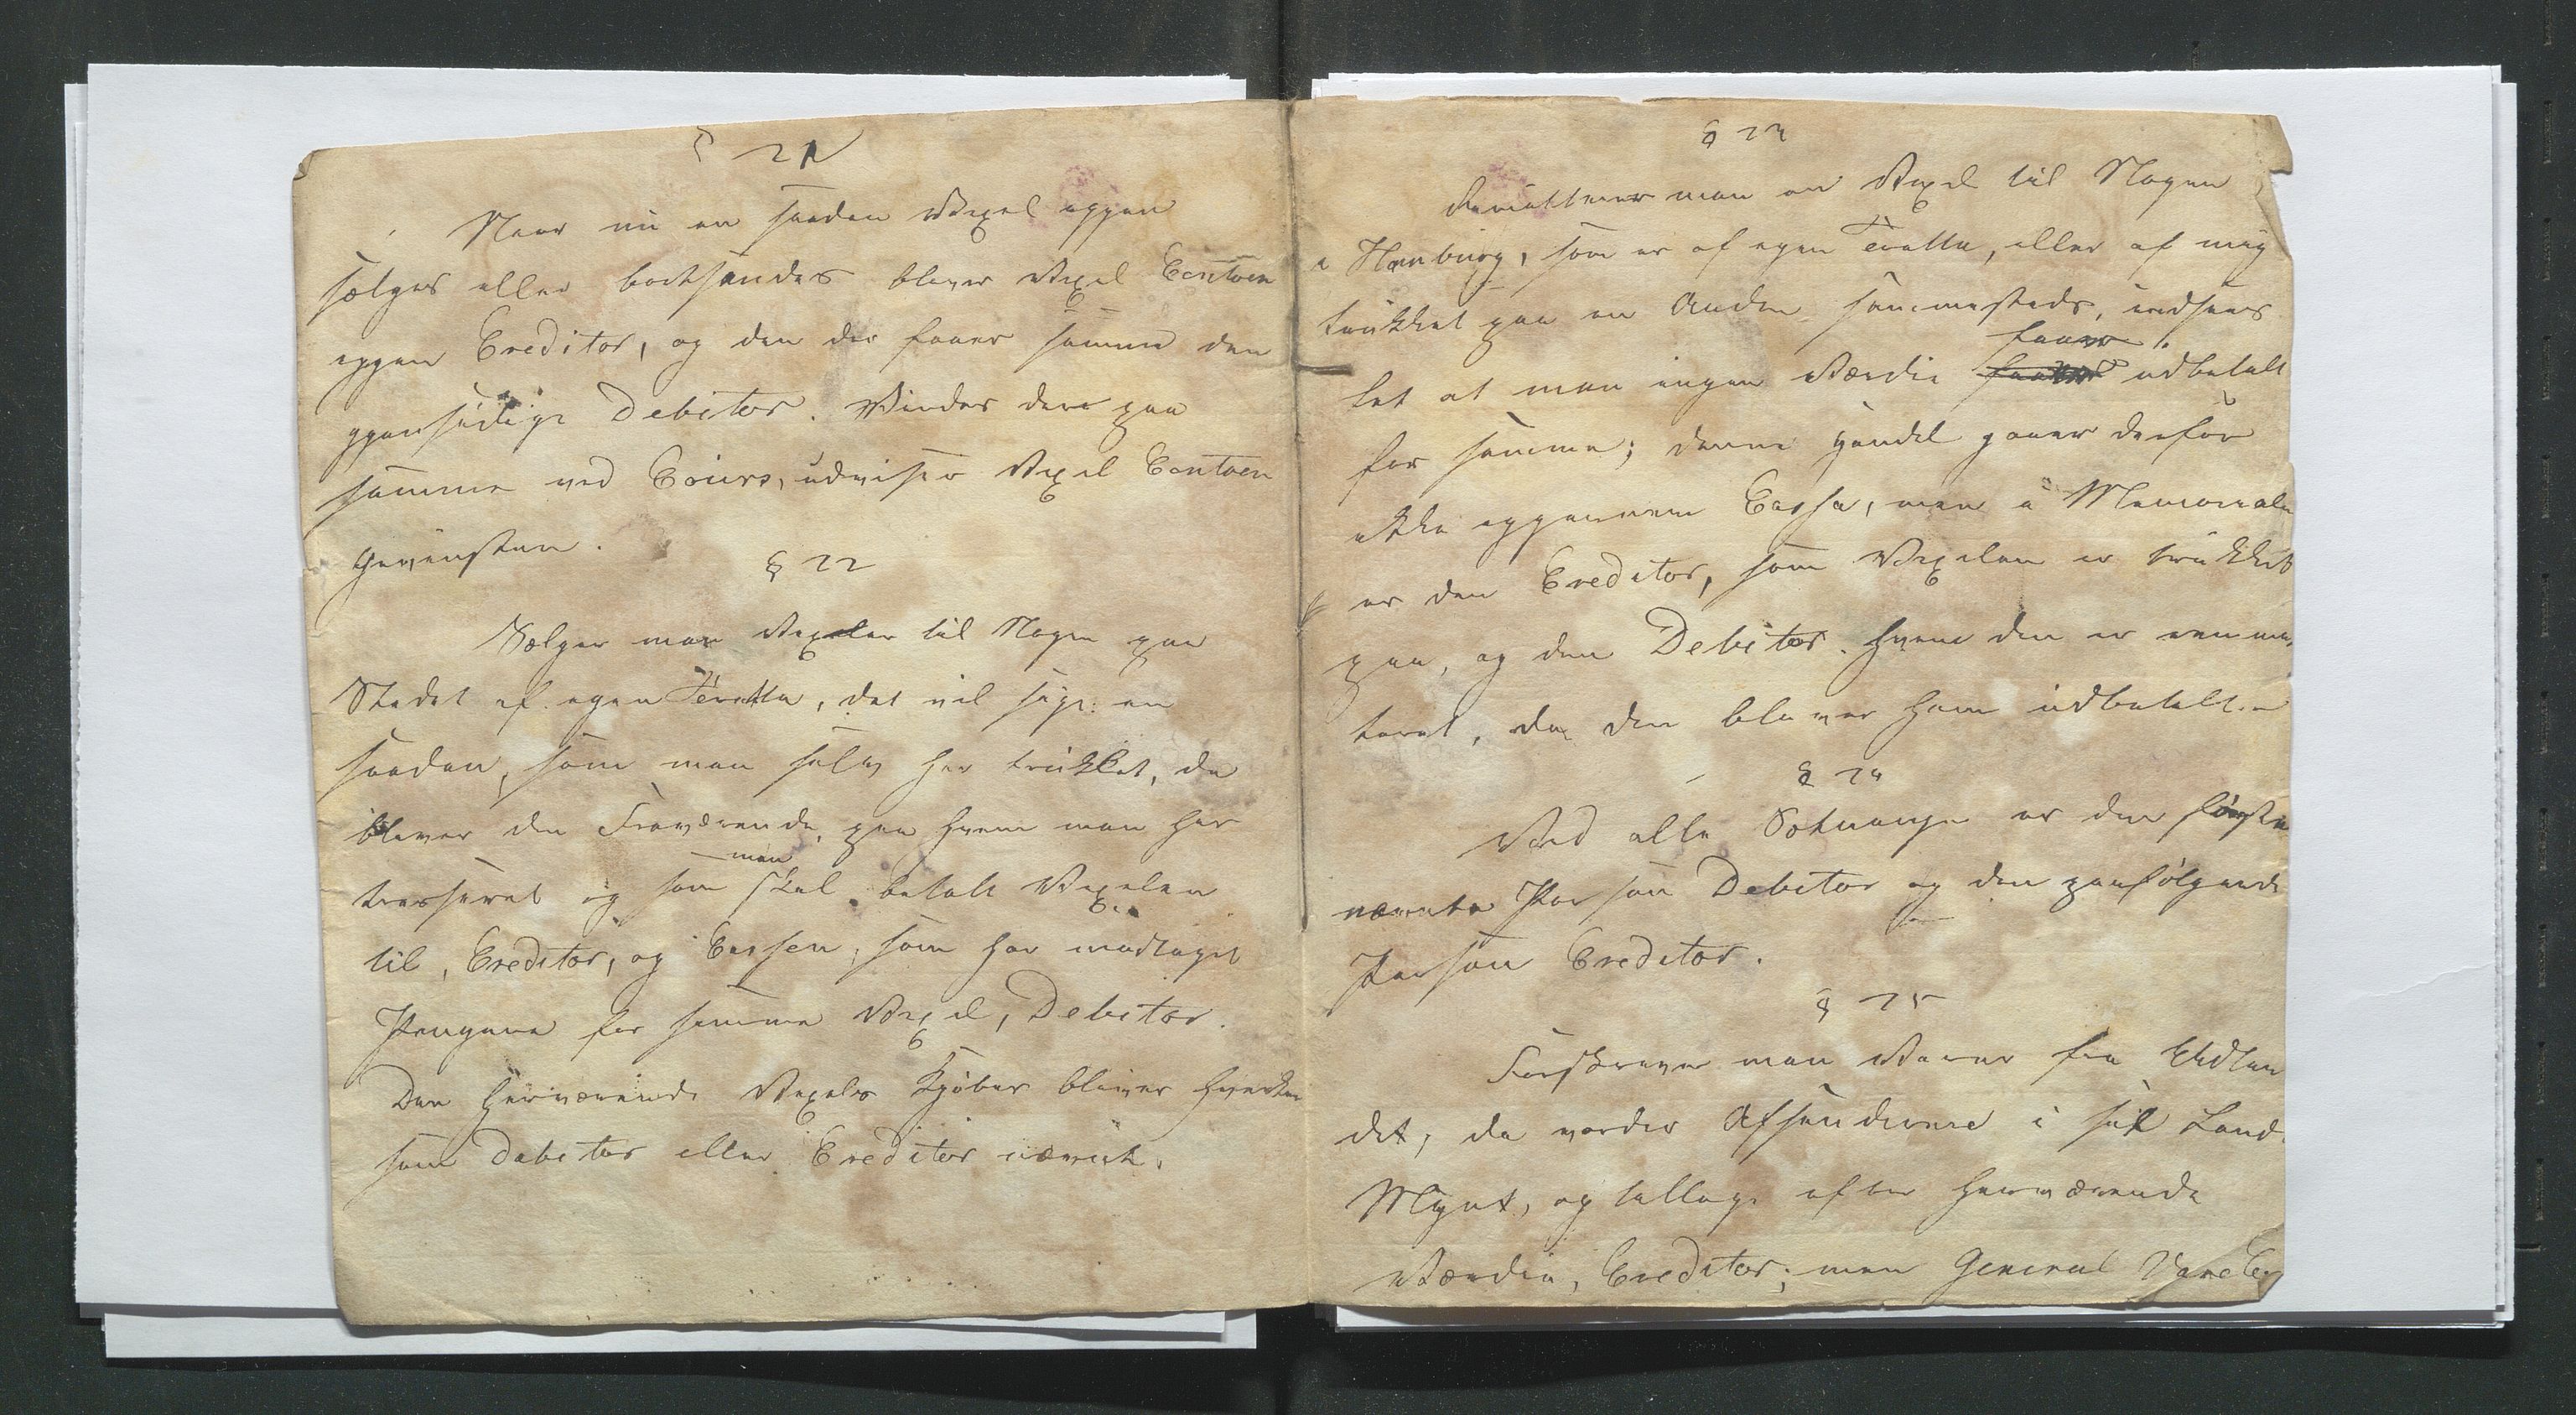 § 21
Naar nu en saadan Vexel igjen
sælges eller bortsendes bliver Vexel Contoen
igjen Creditor, og den der faaer samme den
gjensidige Debitor. Vindes der paa
samme ved Cours, udviser Vexel Contoen
Gevinsten.
§ 22
Sælger man Vexeler til Nogen paa
Stedet af egen Tratta, det vil sige: en
saadan, som man selv har trukket, da
bliver den Fraværende, paa hvem man har
trasseret og som man skal betale Vexelen
til, Creditor, og Cassen, som har modtaget
Pengene for samme Vexel, Debitor.
Den herværende Vexels Kjøber bliver hverken
som Debitor eller Creditor nævnt.
§ 23
Remitterer man en Vexel til Nogen
i Hamburg, som er af egen Tratta, eller af mig
trukket paa en Anden sammesteds, indsees
faaer
let at man ingen Værdie udbetalt
for samme; denne Handel gaaer derfor
ikke igjennem Cassa, men i Memorialen
er den Creditor, som Vexelen er trukket
paa, og den Debitor, hvem den er remit
teret, da den bliver ham udbetalt.
§ 24
Ved alle Sætninger er den første
nævnte Person Debitor og den paafølgende
Person Creditor.
§ 25
Forskriver man Varer fra Udlan
det, da vorder Afsenderne i sit Lands
Mynt, og tillige efter herværende
Værdie, Creditor; men General Vare Co